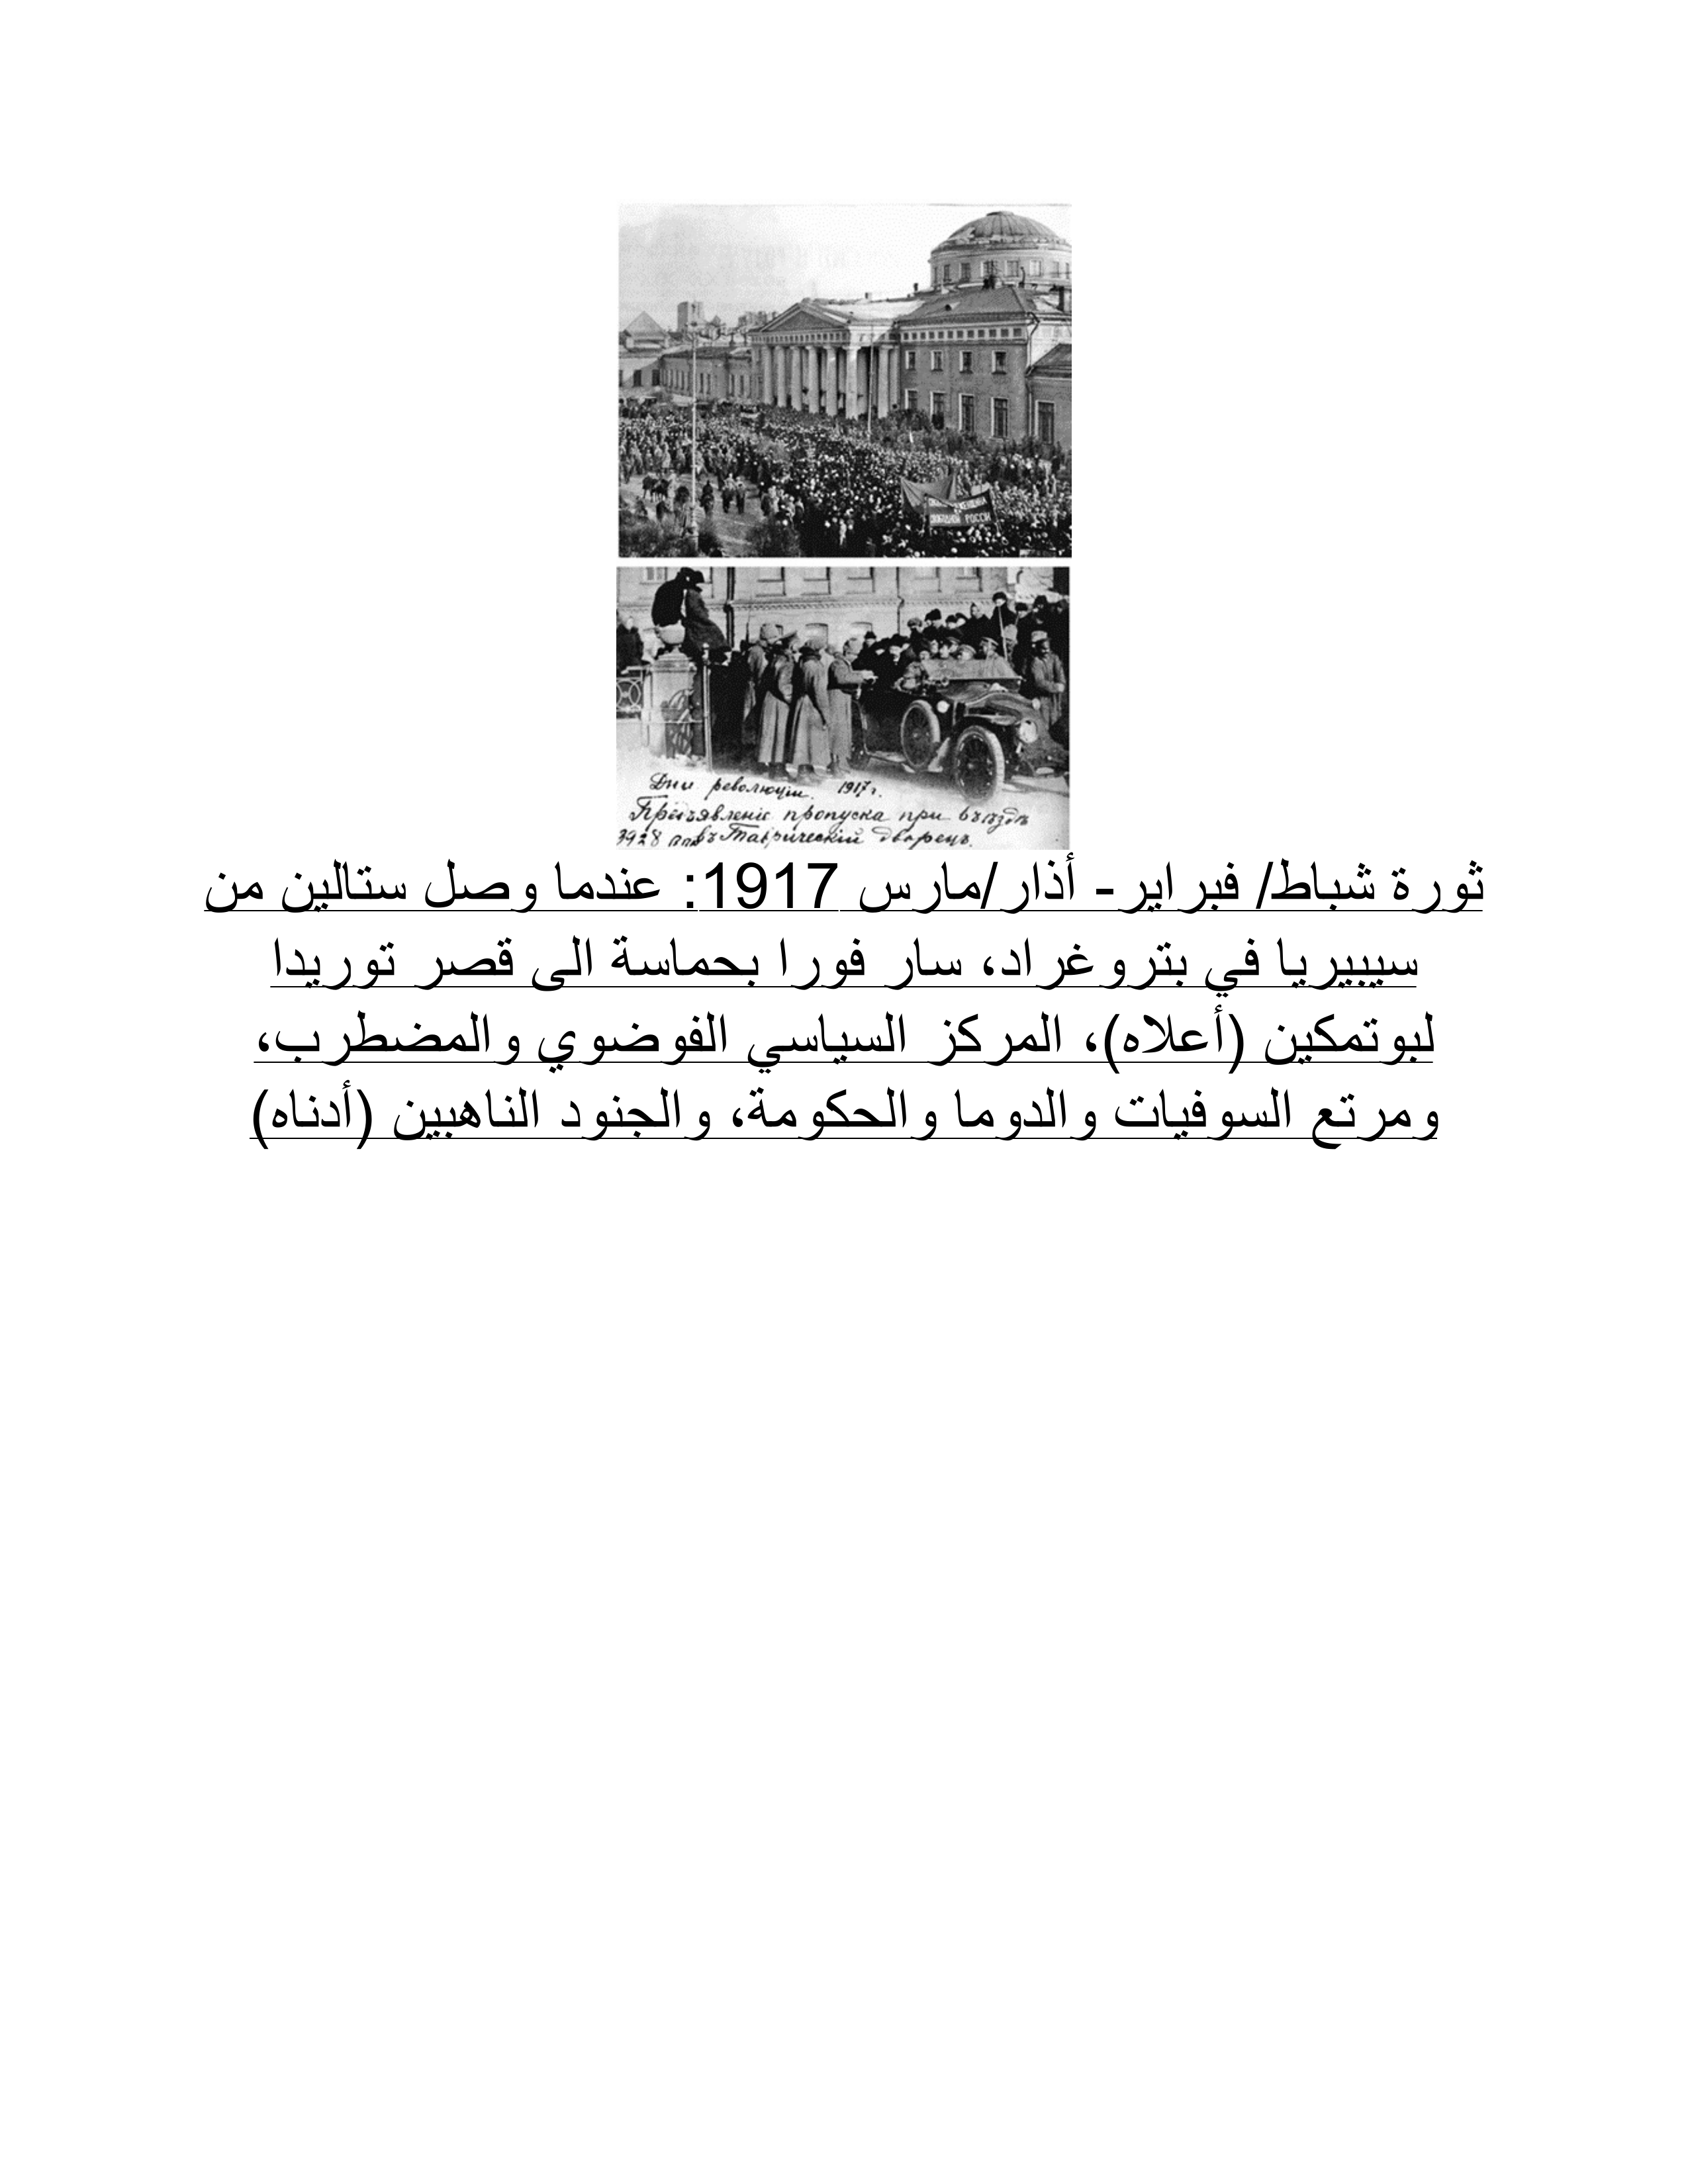 ЖЕНЩИНА
СВОБОДНОЙ РОССИИ
Дни революціи. 1917 г.
Предъявленіе пропуска при въѣздѣ
3928 въ Таврическій дворецъ.
ثورة شباط/ فبراير- أذار/مارس 1917: عندما وصل ستالين من
سيبيريا في بتروغراد، سار فورا بحماسة الى قصر توريدا
لبوتمكين (أعلاه)، المركز السياسي الفوضوي والمضطرب،
ومرتع السوفيات والدوما والحكومة، والجنود الناهبين (أدناه)